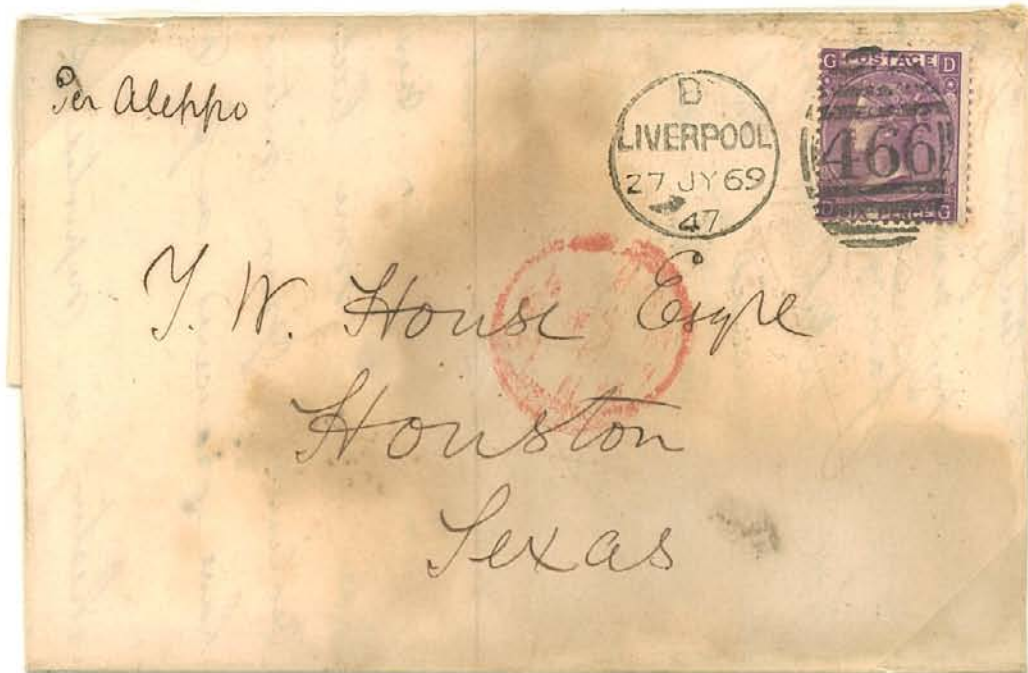 Per Aleppo
B
LIVERPOOL
27 JY 69
47
G POSTAGE D
466
D SIX PENCE G
T. W. House Esqre
Houston
Texas